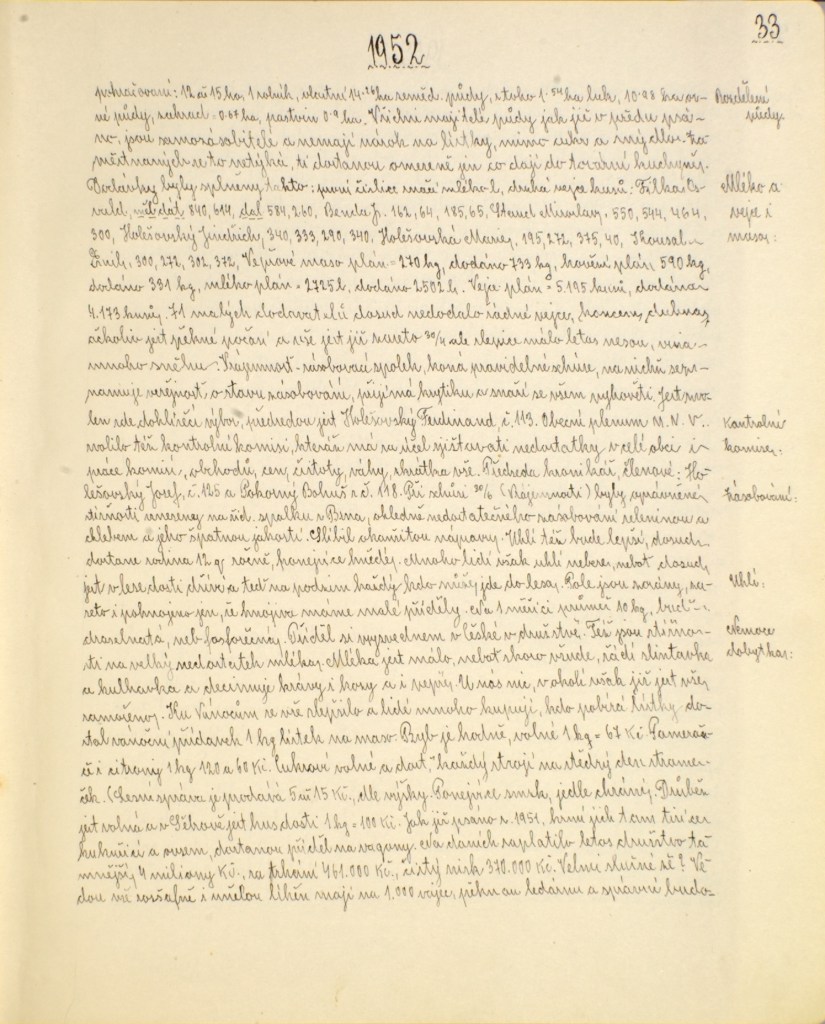 33
1952
pokračování: 12 až 15 ha, 1 rolník, vlastní 14.26 ha zeměd. půdy, z toho 1.54 ha luk, 10.98 ha or-
Rozdělení
né půdy, zahrad 0.67 ha, pastvin 0.9 ha. Všichni majitelé půdy jak již v předu psá-
půdy.
no, jsou samozásobitelé a nemají nárok na lístky, mimo cukru a mýdla. Za-
městnaných se to netýká, ti dostanou omezeně jen co dají do tovární kuchyně.
Dodávky byly splněny takto: první číslice značí mléko l, druhá vejce kusů: Filka Os-
Mléko a
vald, měl dát 840, 614, dal 584, 260, Benda J. 162, 64, 185, 65, Staud Miroslav, 550, 544, 464,
vejce i
300, Holešovský Jindřich, 340, 333, 290, 340, Holešovská Marie, 195, 272, 375, 40, Skousal
maso:
Emil, 300, 272, 302, 372, Vepřové maso plán = 270 kg, dodáno 733 kg, hovězí plán 590 kg,
dodáno 331 kg, mléko plán = 2725 l, dodáno 2502 l. Vejce plán = 5.195 kusů, dodáno
4.173 kusů. 71 malých dodavatelů dosud nedodalo řádně vejce, koncem dubna,
ačkoliv jest pěkné počasí a vše jest již zaseto 30/4 ale slepice málo letos nesou, vina
mnoho sněhu. Vzájemnost - zásobovací spolek, koná pravidelné schůze, na nichž sezna-
namuje veřejnost, o stavu zásobování, přijímá kritiku a snaží se všem vyhověti. Jest zvo-
len zde dohlížecí výbor, předsedou jest Holešovský Ferdinand, č. 113. Obecní plenum M.N.V.
Kontrolní
volilo též kontrolní komisi, kteráž má za účel zjišťovati nedostatky v celé obci i
komise:
práce komínů, obchodů, cen, čistoty, váhy, zkrátka vše. Předseda kronikář, členové: Ho-
lešovský Josef, č. 125 a Pokorný Bohuš z č. 118. Při schůzi 30/6 (Vzájemnosti) byly oprávněné
Zásobování:
stížnosti vzneseny na úd. spolku z Brna, ohledně nedostatečného zásobování zeleninou a
chlebem a jeho špatnou jakostí. Slíbil okamžitou nápravu. Uhlí též bude lepší, dosud
dostane rodina 12 q ročně, ponejvíce hnědé. Mnoho lidí však uhlí nebere, neboť dosud
jest v lese dosti dříví a teď na podzim každý kdo může jde do lesa. Pole jsou zorány, za-
Uhlí:
seto i pohnojeno jen, že hnojiva máme malé příděly. Na 1 měřici průměr 10 kg, buď
draselnatá, neb fosforečná. Příděl si vyzvednem v České v družstvě. Též jsou stížno-
Nemoce
sti na velký nedostatek mléka. Mléka jest málo, neboť skoro všude, řádí slintavka
dobytka:
a kulhavka a decimuje krávy i kozy a i vepře. U nás nic, v okolí však již jest vše
zamořeno. Ku Vánocům se vše zlepšilo a lidé mnoho kupují, kdo pobírá lístky do-
stal vánoční přídavek 1 kg lístek na maso. Ryb je hodně, volné 1 kg = 67 Kč. Pomeran-
če i citrony 1 kg 120 a 60 Kč. Cukroví volné a dost, každý strojí na štědrý den strome-
ček. (Lesní správa je prodává 5 až 15 Kč, dle výšky. Ponejvíce smrk, jedle chrání. Drůbež
jest volná a v Těhově jest hus dosti 1 kg = 100 Kč. Jak již psáno r. 1951, krmí jich tam tisíce
kukuřicí a ovsem, dostanou příděl na vagony. Na daních zaplatilo letos družstvo ta-
mnější, 4 miliony Kč, za škání 461.000 Kč, čistý zisk 370.000 Kč. Velmi slušné že? Ve-
dou vše rozšafně i umělou líheň mají na 1.000 vajec, pěknou ledárnu a správní budo-